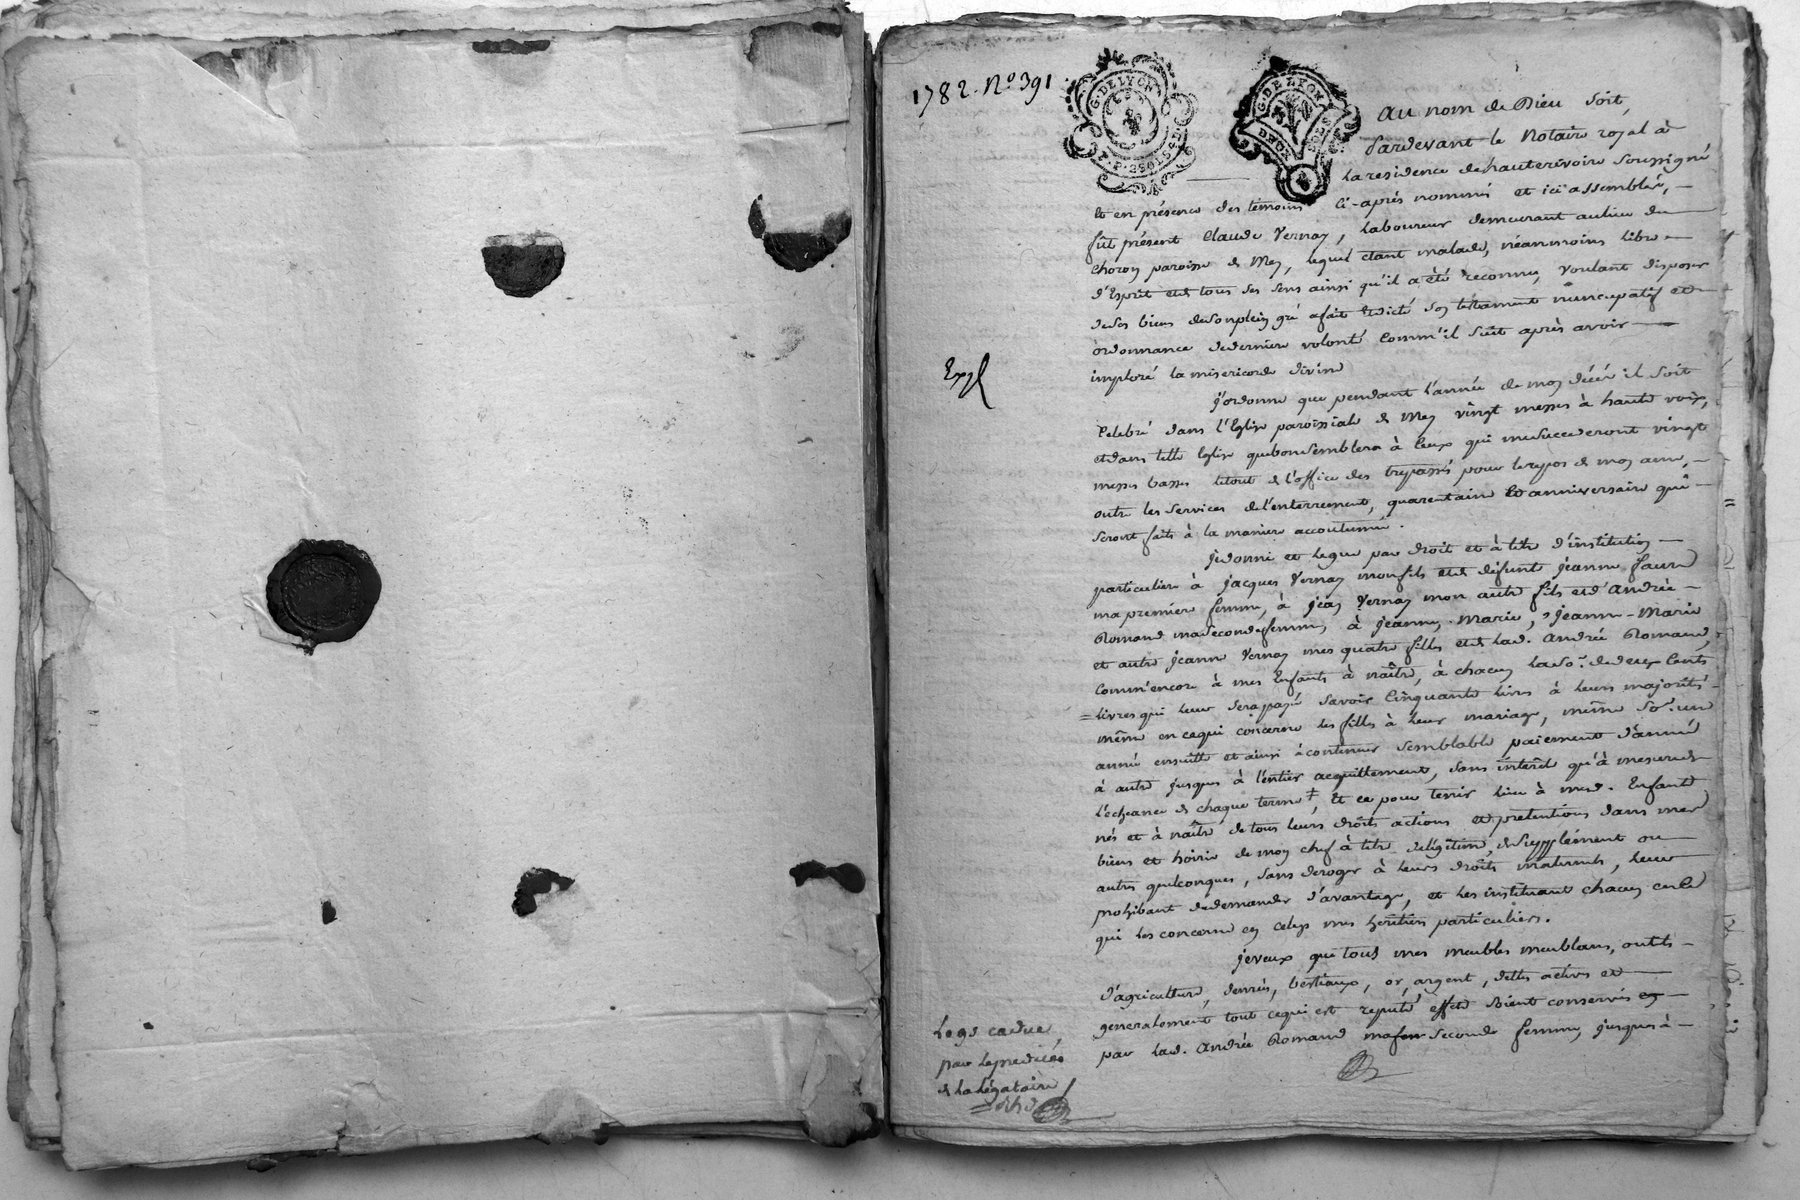 1782. No 391
G. DE LYON
G. DE LYON
DEUX SOLS
Au nom de Dieu soit,
Pardevant le Notaire royal à
la residence de hauterivoire soussigné
et en présence des témoins ci-après nommés et ici assemblés,
fût présent Claude Vernay, laboureur demeurant au lieu du
Choron paroisse de Mey, lequel étant malade, néanmoins libre
d'Esprit et de tous ses sens ainsi qu'il a été reconnu, voulant disposer
de ses biens de son plein gré a fait et dicté son testament nuncupatif et
ordonnance de derniere volonté comm'il suit après avoir
imploré la misericorde divine
j'ordonne que pendant l'année de mon décès il soit
celebré dans l'Eglise paroissiale de Mey vingt messes à haute voix,
et dans telle Eglise que bon semblera à ceux qui me succederont vingt
messes basses le tout de l'office des trepassés pour le repos de mon ame,
outre les services de l'enterrement, quarantaine et anniversaire qui
seront faits à la maniere accoutumée.
je donne et legue par droit et à titre d'institution
particuliere à jacques Vernay mon fils et de défunte jeanne faure
ma premiere femme, à jean Vernay mon autre fils et d'andrée
Romand ma seconde femme, à jeanne, Marie, jeanne-Marie
et autre jeanne Vernay mes quatre filles et de lad. andrée Romand,
comm'encore à mes Enfants à naître, à chacun la so. de deux cents
livres qui leur sera payée savoir cinquante livres à leurs majorités
même en ce qui concerne les filles à leur mariage, même so. un
année ensuitte et ainsi à continuer semblable paiement d'année
à autre jusques à l'entier acquittement, sans interêt qu'à mesure de
l'echeance de chaque terme, et ce pour tenir lieu à mesd. Enfants
nés et à naître de tous leurs droits actions et pretentions dans mes
biens et hoirie de mon chef à titre de légitime, de supplément ou
autres quelconques, sans deroger à leurs droits maternels, leur
prohibant de demander d'avantage, et les instituant chacun en ce
qui les concerne en celuy mes héritiers particuliers.
je veux que tous mes meubles meublans, outils
d'agriculture, denrées, bestiaux, or, argent, dettes actives et
generalement tout ce qui est reputé effets soient conservés
par lad. andrée Romand ma seconde femme, jusques à
Expé
Legs caduc
par le predécès
de la légataire